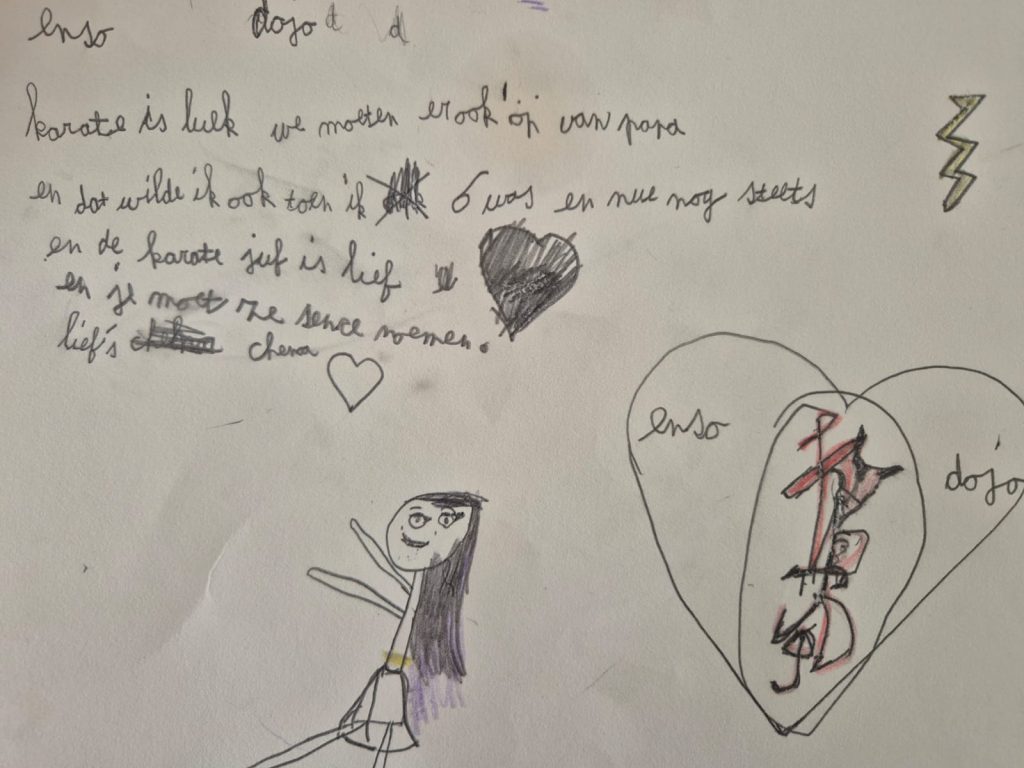 enso dojo d d
karate is luek we moeten er ook op van papa
en dat wilde ik ook toen ik 6 was en nue nog steets
en de karate juf is lief
en je moet ze sence noemen.
lief's chena
enso
dojo